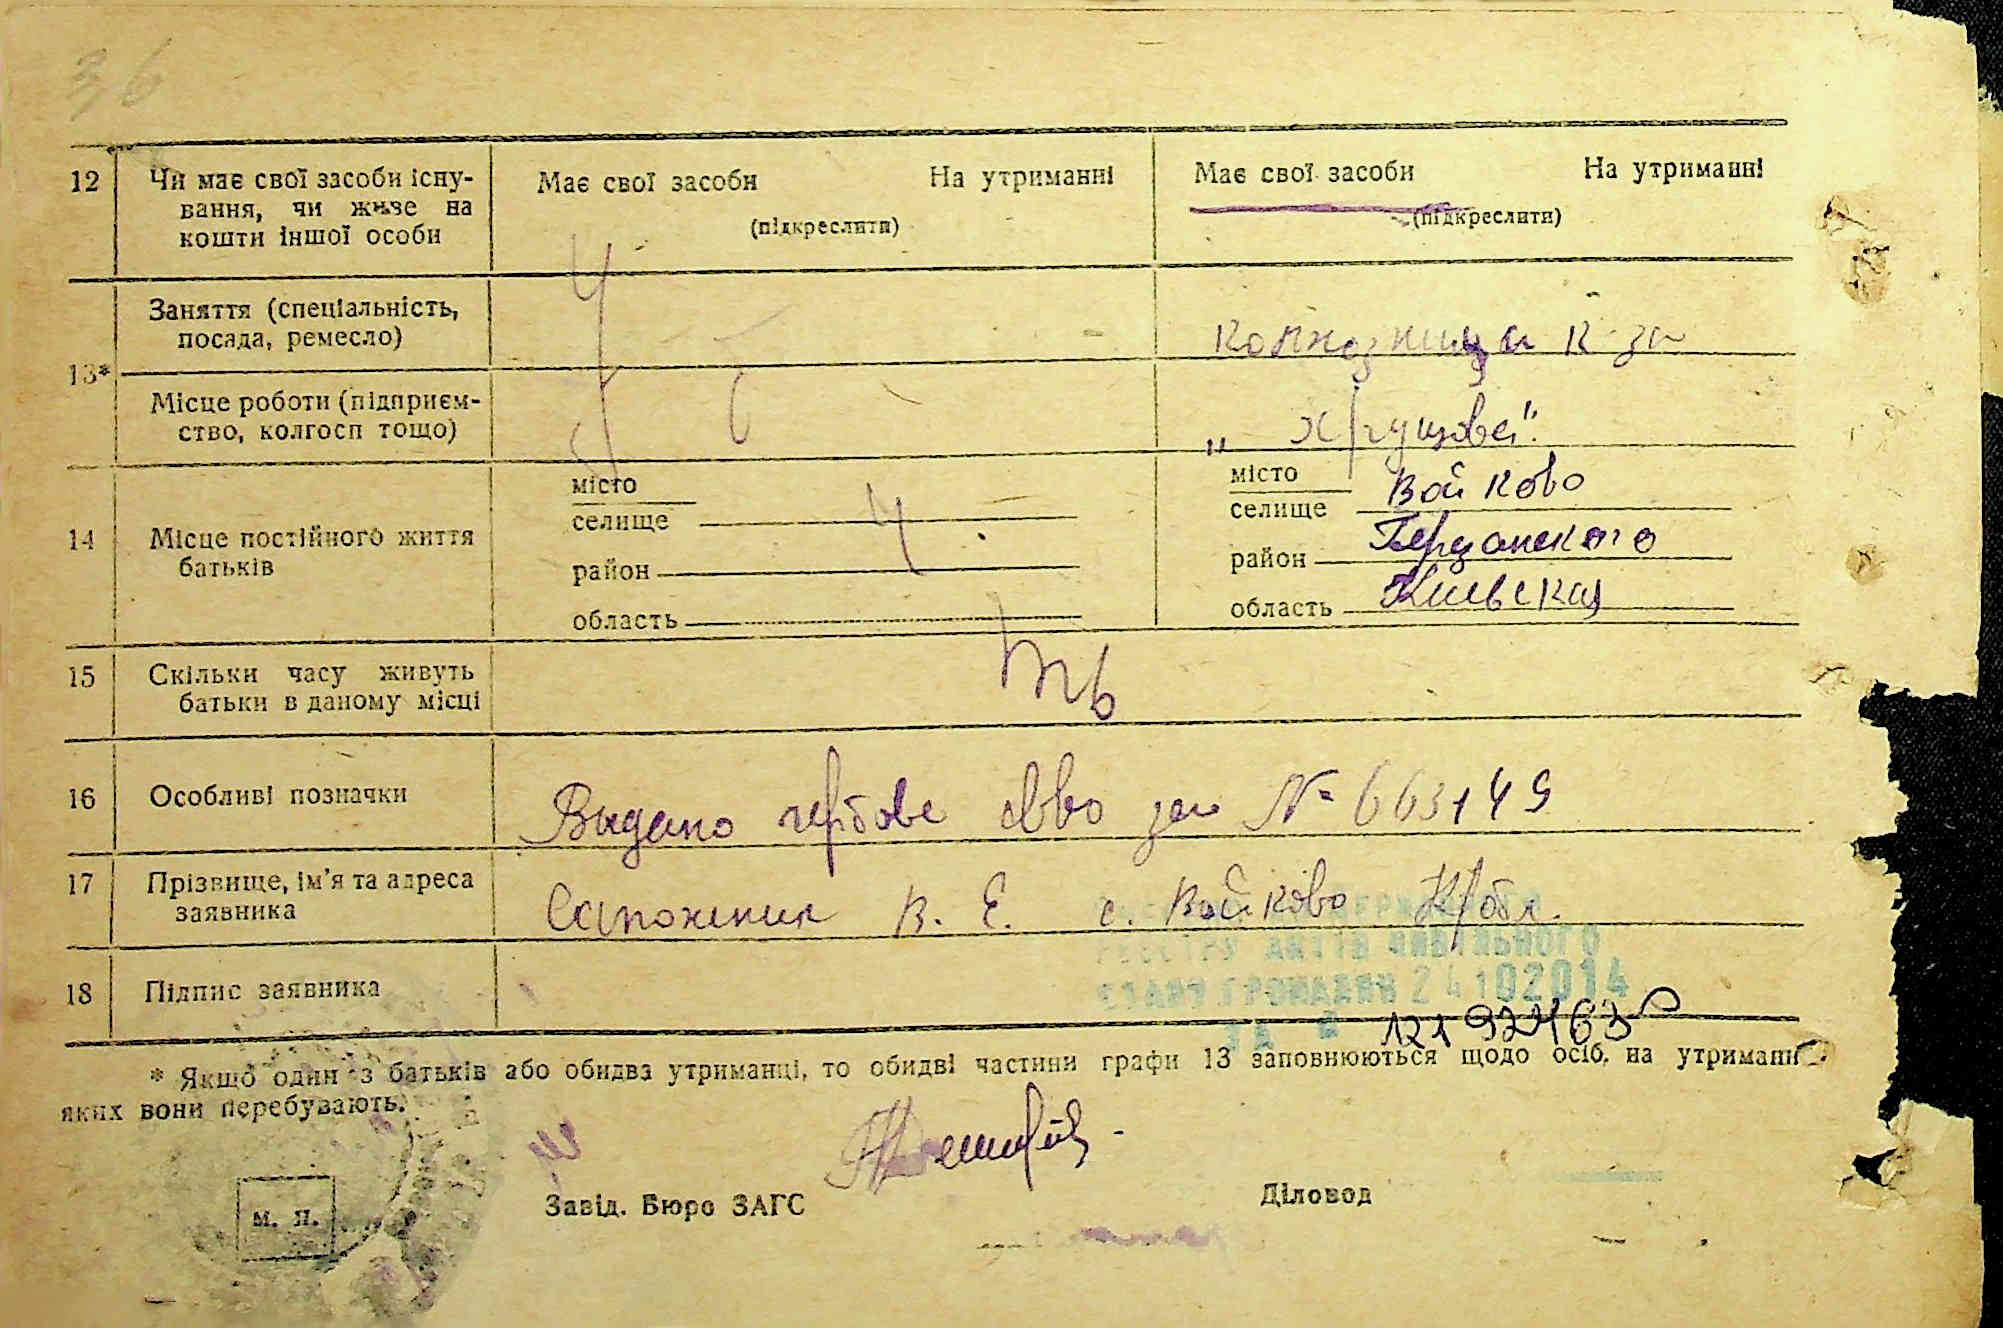 36
12 Чи має свої засоби існу-
вання, чи живе на
кошти іншої особи
Має свої засоби На утриманні
(підкреслити)
Має свої засоби На утриманні
(підкреслити)
13*
Заняття (спеціальність,
посада, ремесло)
колхозница к-за
Місце роботи (підприєм-
ство, колгосп тощо)
„ Хрущова".
14 Місце постійного життя
батьків
місто
селище
район
область
місто
селище Войково
район
область Киевская
15 Скільки часу живуть
батьки в даному місці
16 Особливі позначки
Видано гербове св-во за № 663149
17 Прізвище, ім'я та адреса
заявника
В. Е. с. Войково К/обл.
18 Підпис заявника
ДЕРЖАВНОГО
РЕЄСТРУ АКТІВ ЦИВІЛЬНОГО
СТАНУ ГРОМАДЯН 24 102014
* Якщо один з батьків або обидва утриманці, то обидві частини графи 13 заповнюються щодо осіб, на утриманні
яких вони перебувають.
М. П.
Завід. Бюро ЗАГС
Діловод